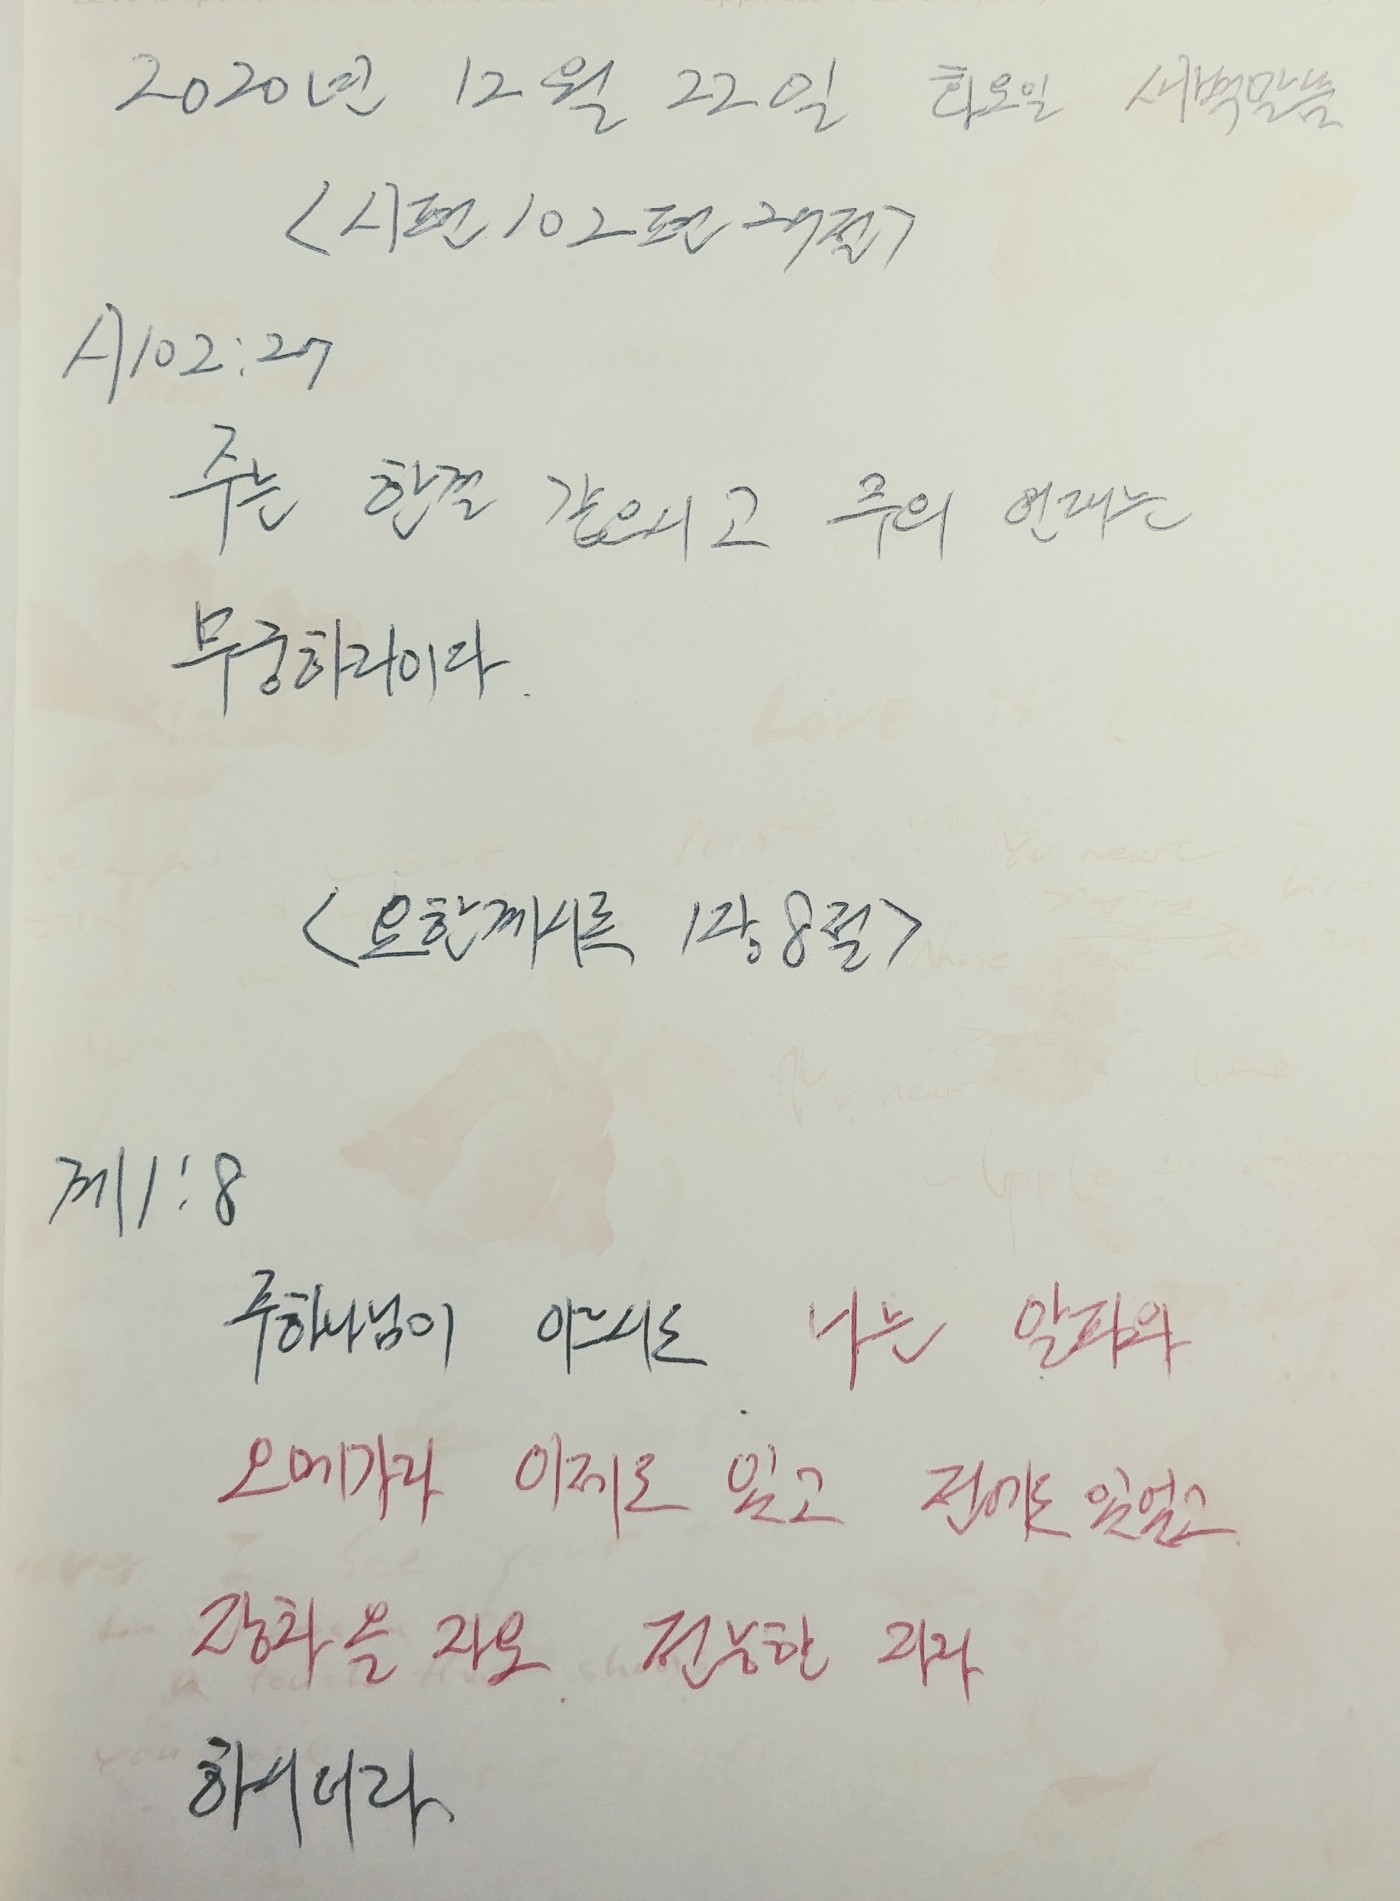 2020년 12월 22일 화요일 새벽말씀
<시편 102편 27절>
시102:27
주는 한결 같으시고 주의 연대는
무궁하리이다.
<요한계시록 1장 8절>
계1:8
주 하나님이 이르시되 나는 알파와
오메가라 이제도 있고 전에도 있었고
장차 올 자요 전능한 자라
하시더라